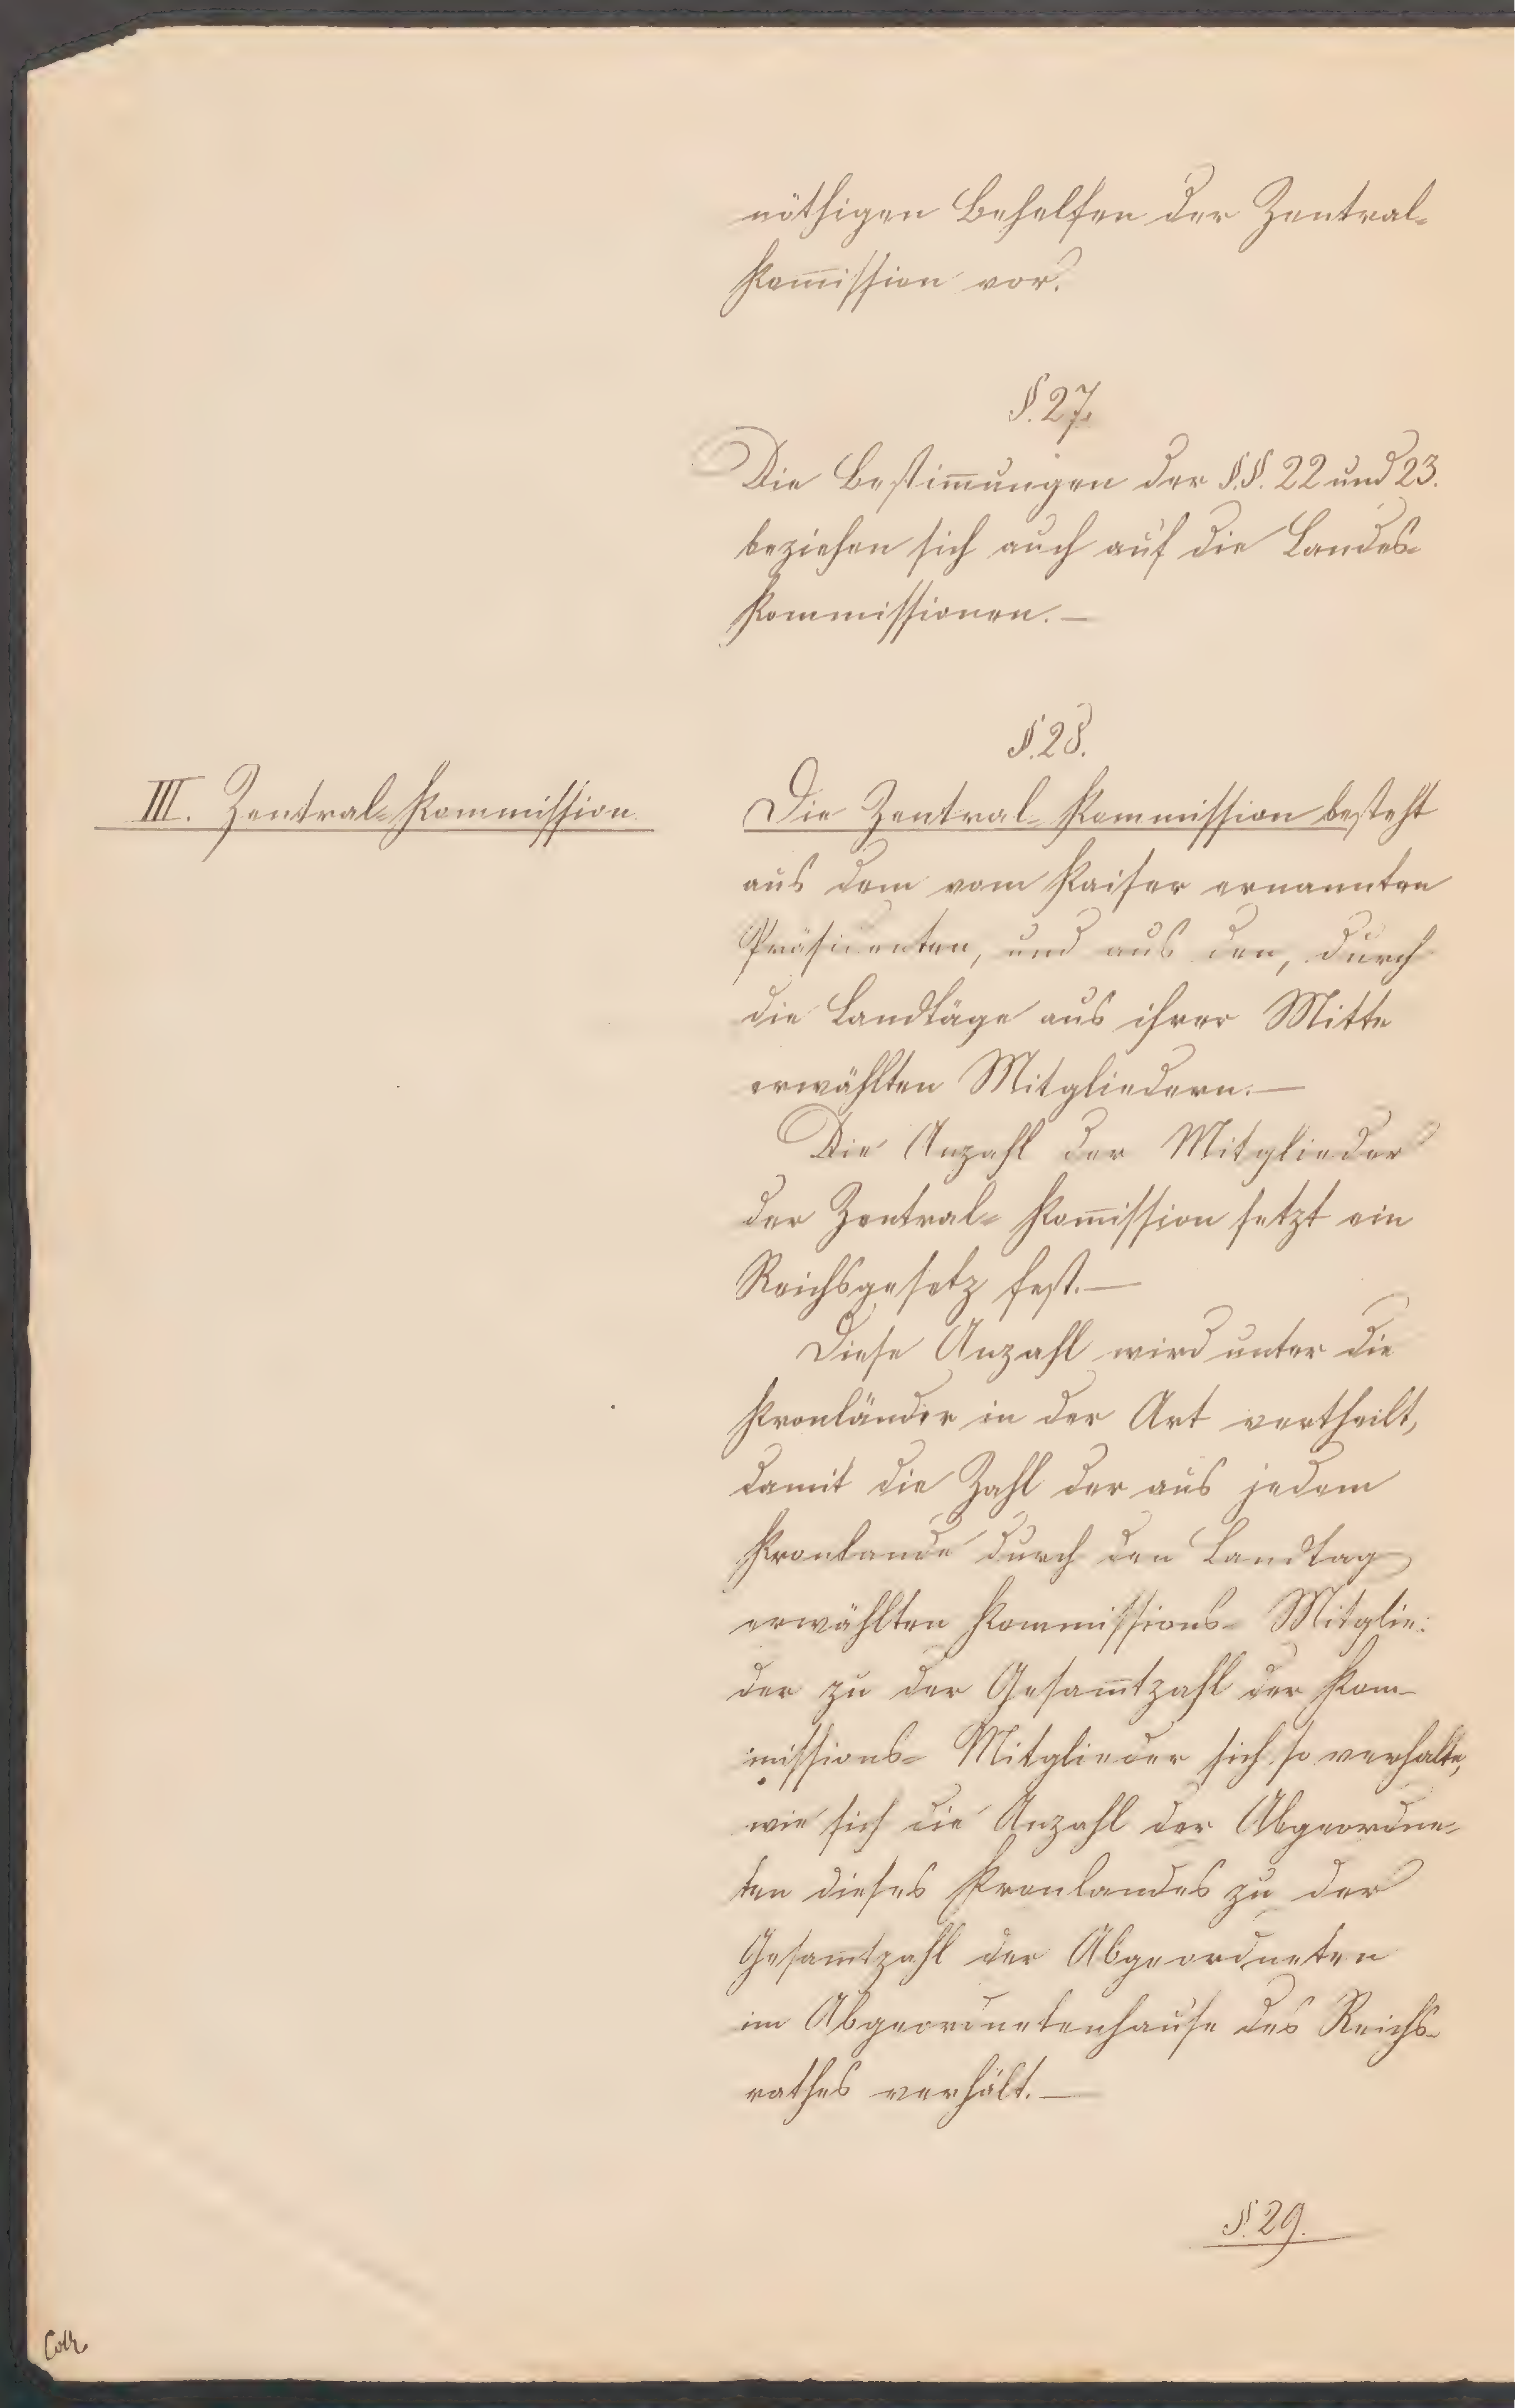 nöthigen Behelfen der Zentral-
Kom̄ission vor.
§. 27.
Die Bestim̄ungen der §.§. 22 und 23.
beziehen sich auch auf die Landes-
Kommissionen.—
§. 28.
III. Zentral-Kommission.
Die Zentral-Kommission besteht
aus dem vom Kaiser ernannten
Präsidenten, und aus den, durch
die Landtäge aus ihrer Mitte
erwählten Mitgliedern.—
Die Anzahl der Mitglieder
der Zentral-Kom̄ission setzt ein
Reichsgesetz fest.—
Diese Anzahl wird unter die
Kronländer in der Art vertheilt,
damit die Zahl der aus jedem
Kronlande durch den Landtag
erwählten Kommissions-Mitglie-
der zu der Gesam̄tzahl der Kom-
missions-Mitglieder sich so verhalte,
wie sich die Anzahl der Abgeordne-
ten dieses Kronlandes zu der
Gesam̄tzahl der Abgeordneten
im Abgeordnetenhause des Reichs-
rathes verhält.—
§. 29.